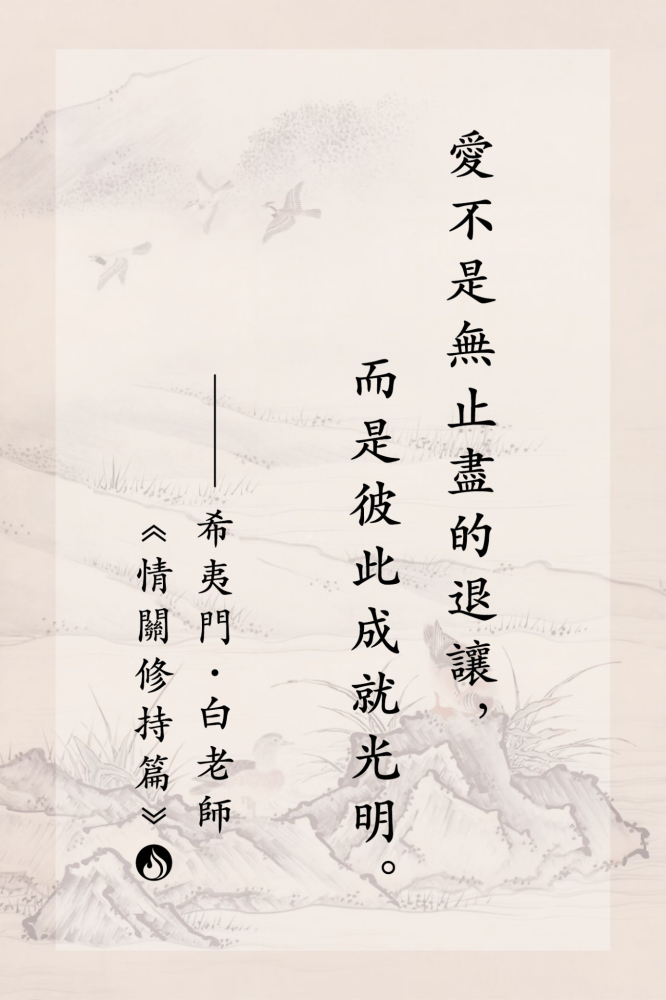 愛不是無止盡的退讓，
而是彼此成就光明。
——希夷門·白老師
《情關修持篇》